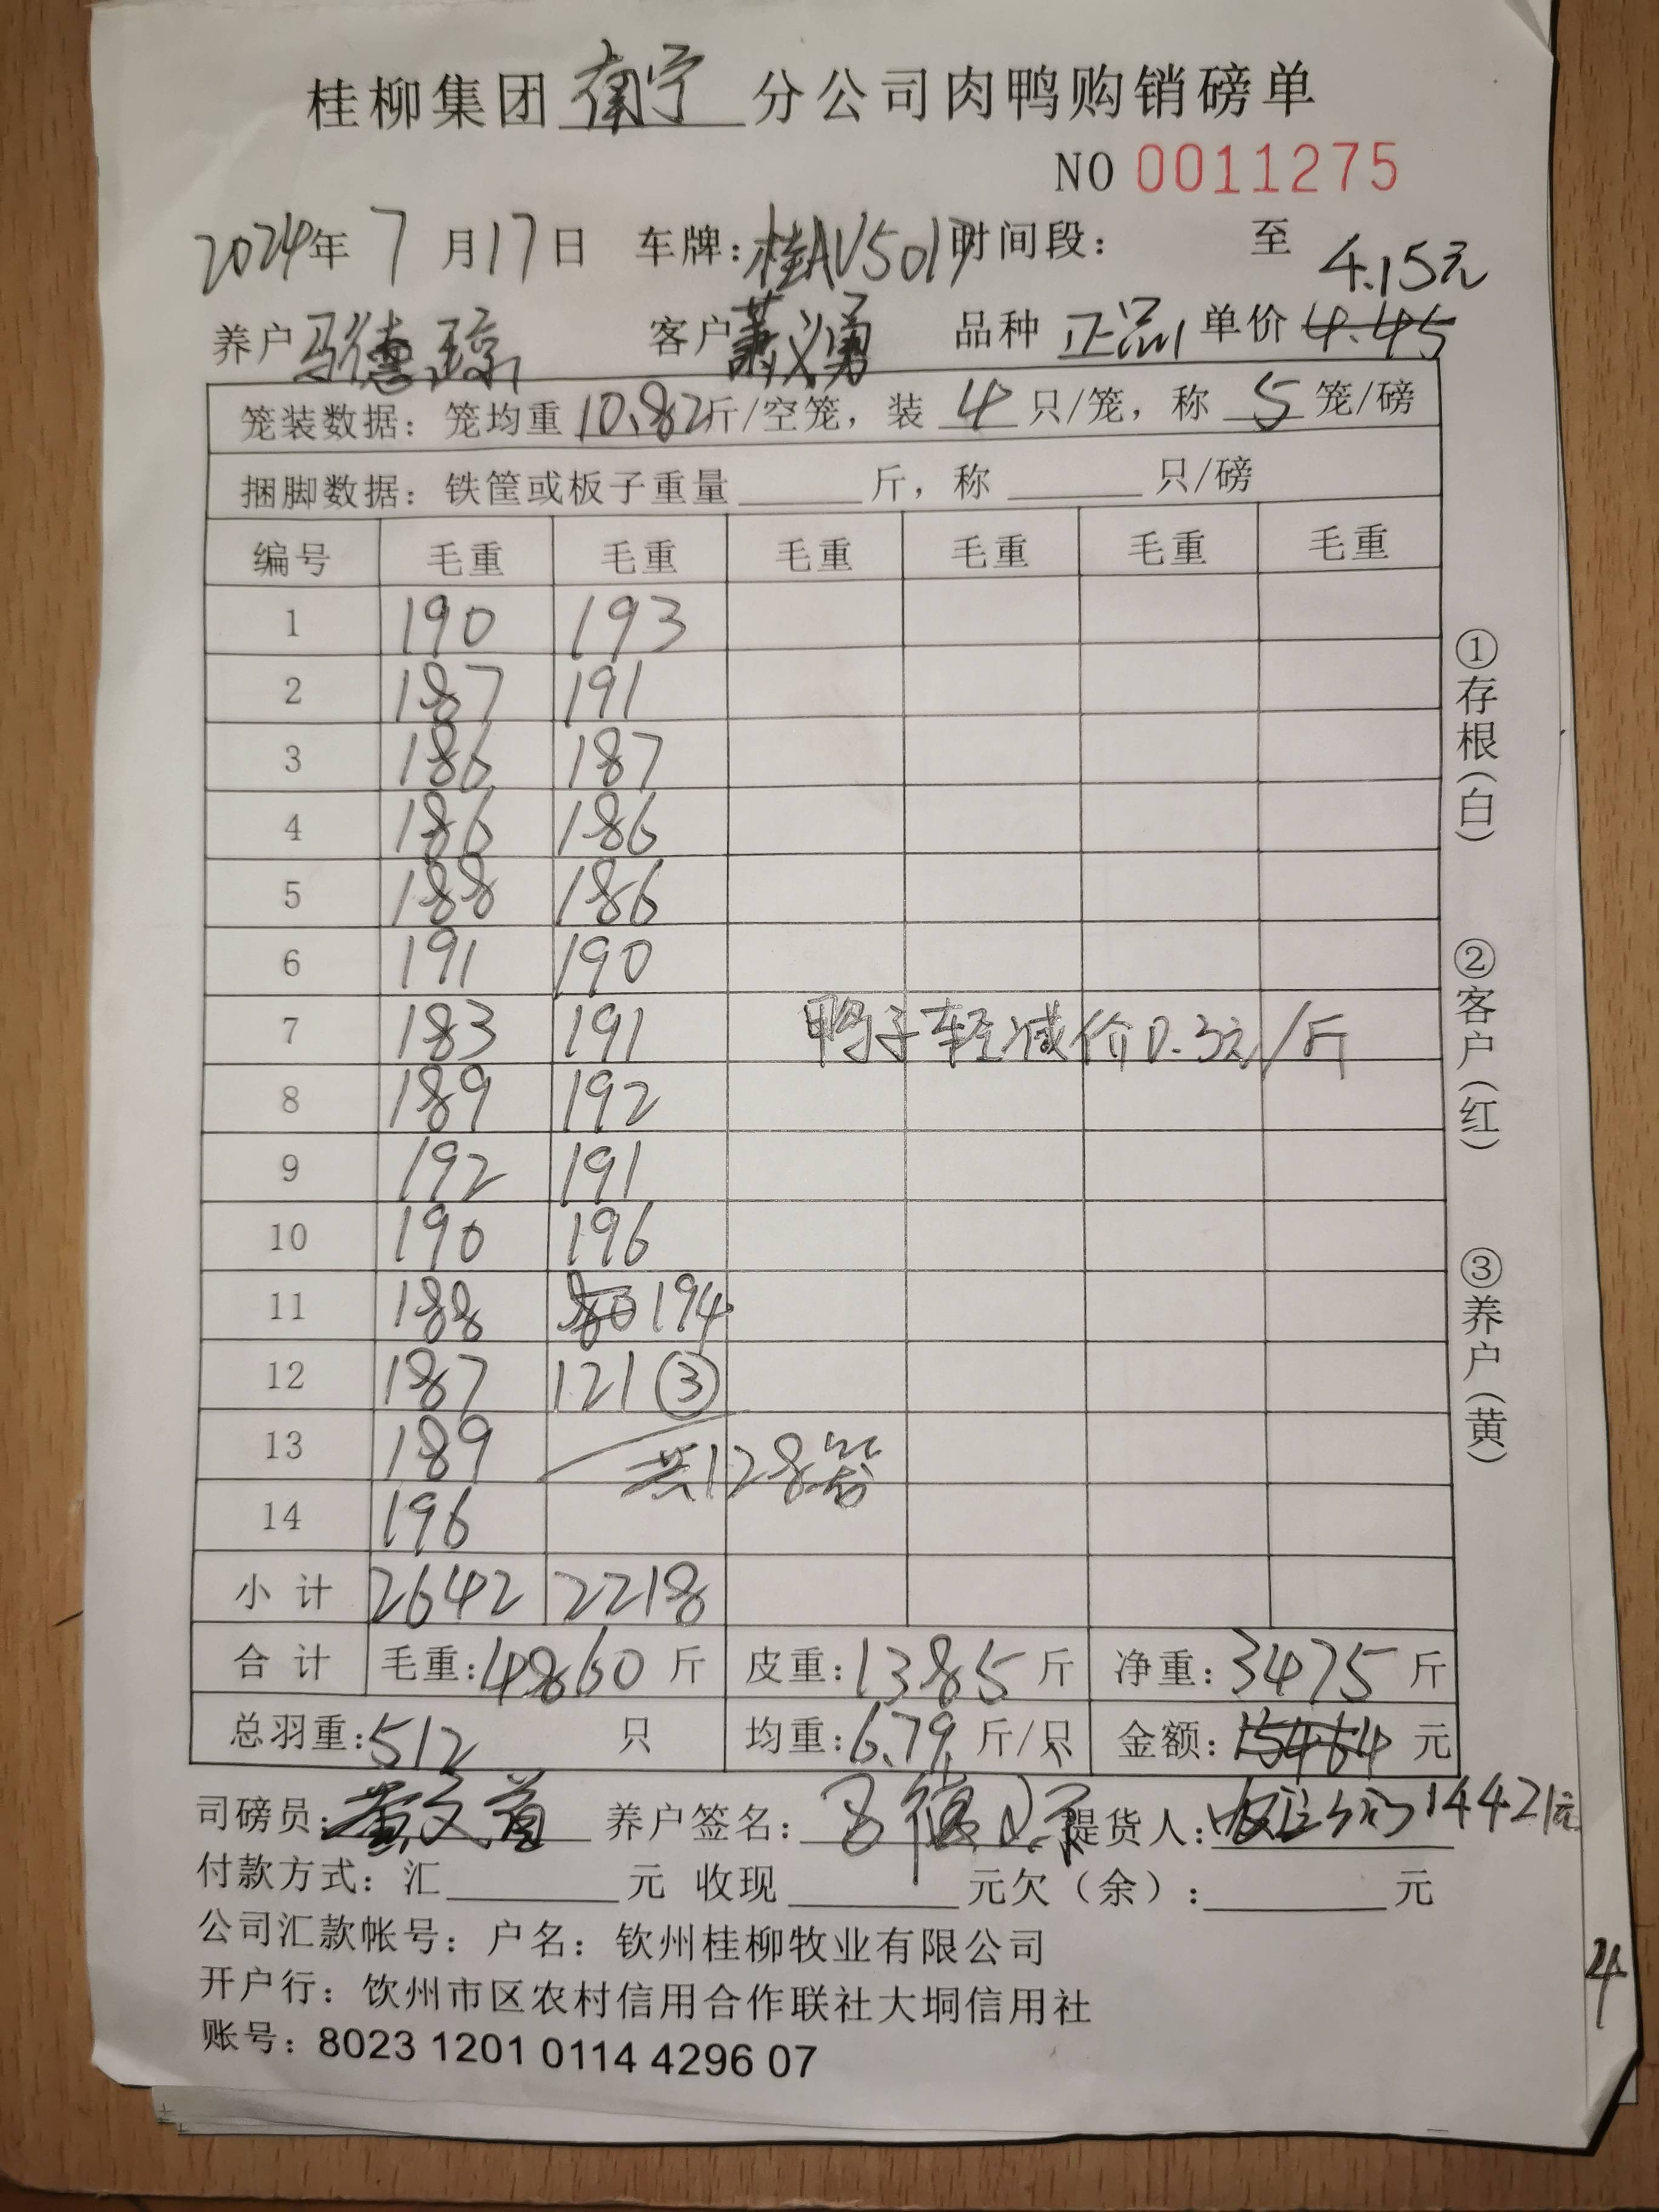 桂柳集团南宁分公司肉鸭购销磅单
NO 0011275
2024年7月17日 车牌:桂AV5017时间段: 至
4.15元
养户 客户萧义勇 品种 正品 单价 4.45
笼装数据: 笼均重10.82斤/空笼, 装 4 只/笼, 称 5 笼/磅
捆脚数据: 铁筐或板子重量 斤, 称 只/磅
编号 毛重 毛重 毛重 毛重 毛重 毛重
1 190 193
2 187 191
3 186 187
4 186 186
5 188 186
6 191 190
7 183 191 鸭子轻减价0.3元/斤
8 189 192
9 192 191
10 190 196
11 188 80 194
12 187 121 ③
13 189 共128笼
14 196
小计 2642 2218
合计 毛重:4860 斤 皮重:1385 斤 净重:3475 斤
总羽重:512 只 均重:6.79 斤/只 金额:15464 元
司磅员: 养户签名: 提货人: 14421元
付款方式: 汇 元 收现 元欠(余): 元
公司汇款帐号: 户名: 钦州桂柳牧业有限公司
开户行: 饮州市区农村信用合作联社大垌信用社
账号: 8023 1201 0114 4296 07
①存根(白) ②客户(红) ③养户(黄)